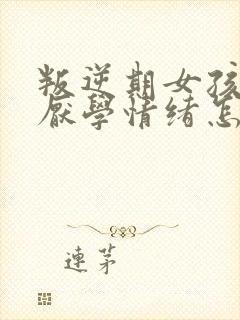 叛逆期女孩
厌學情绪怎
連茅